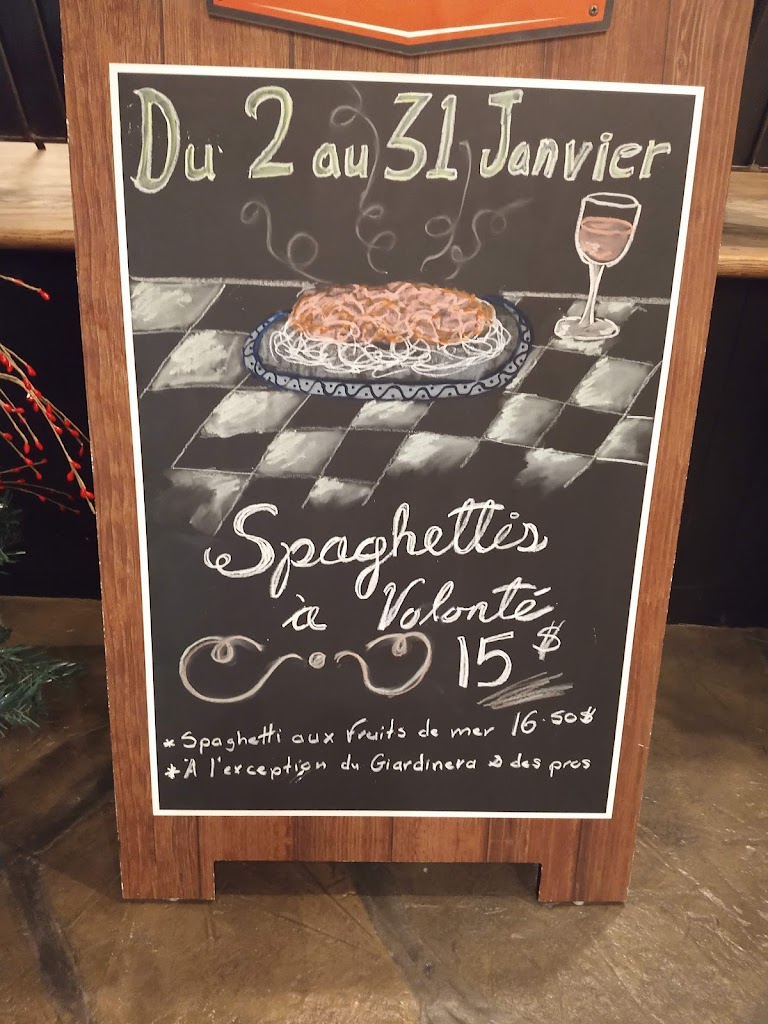 Du 2 au 31 Janvier
Spaghettis
à Volonté
15 $
* Spaghetti aux fruits de mer 16.50$
* À l'exception du Giardinera & des pros